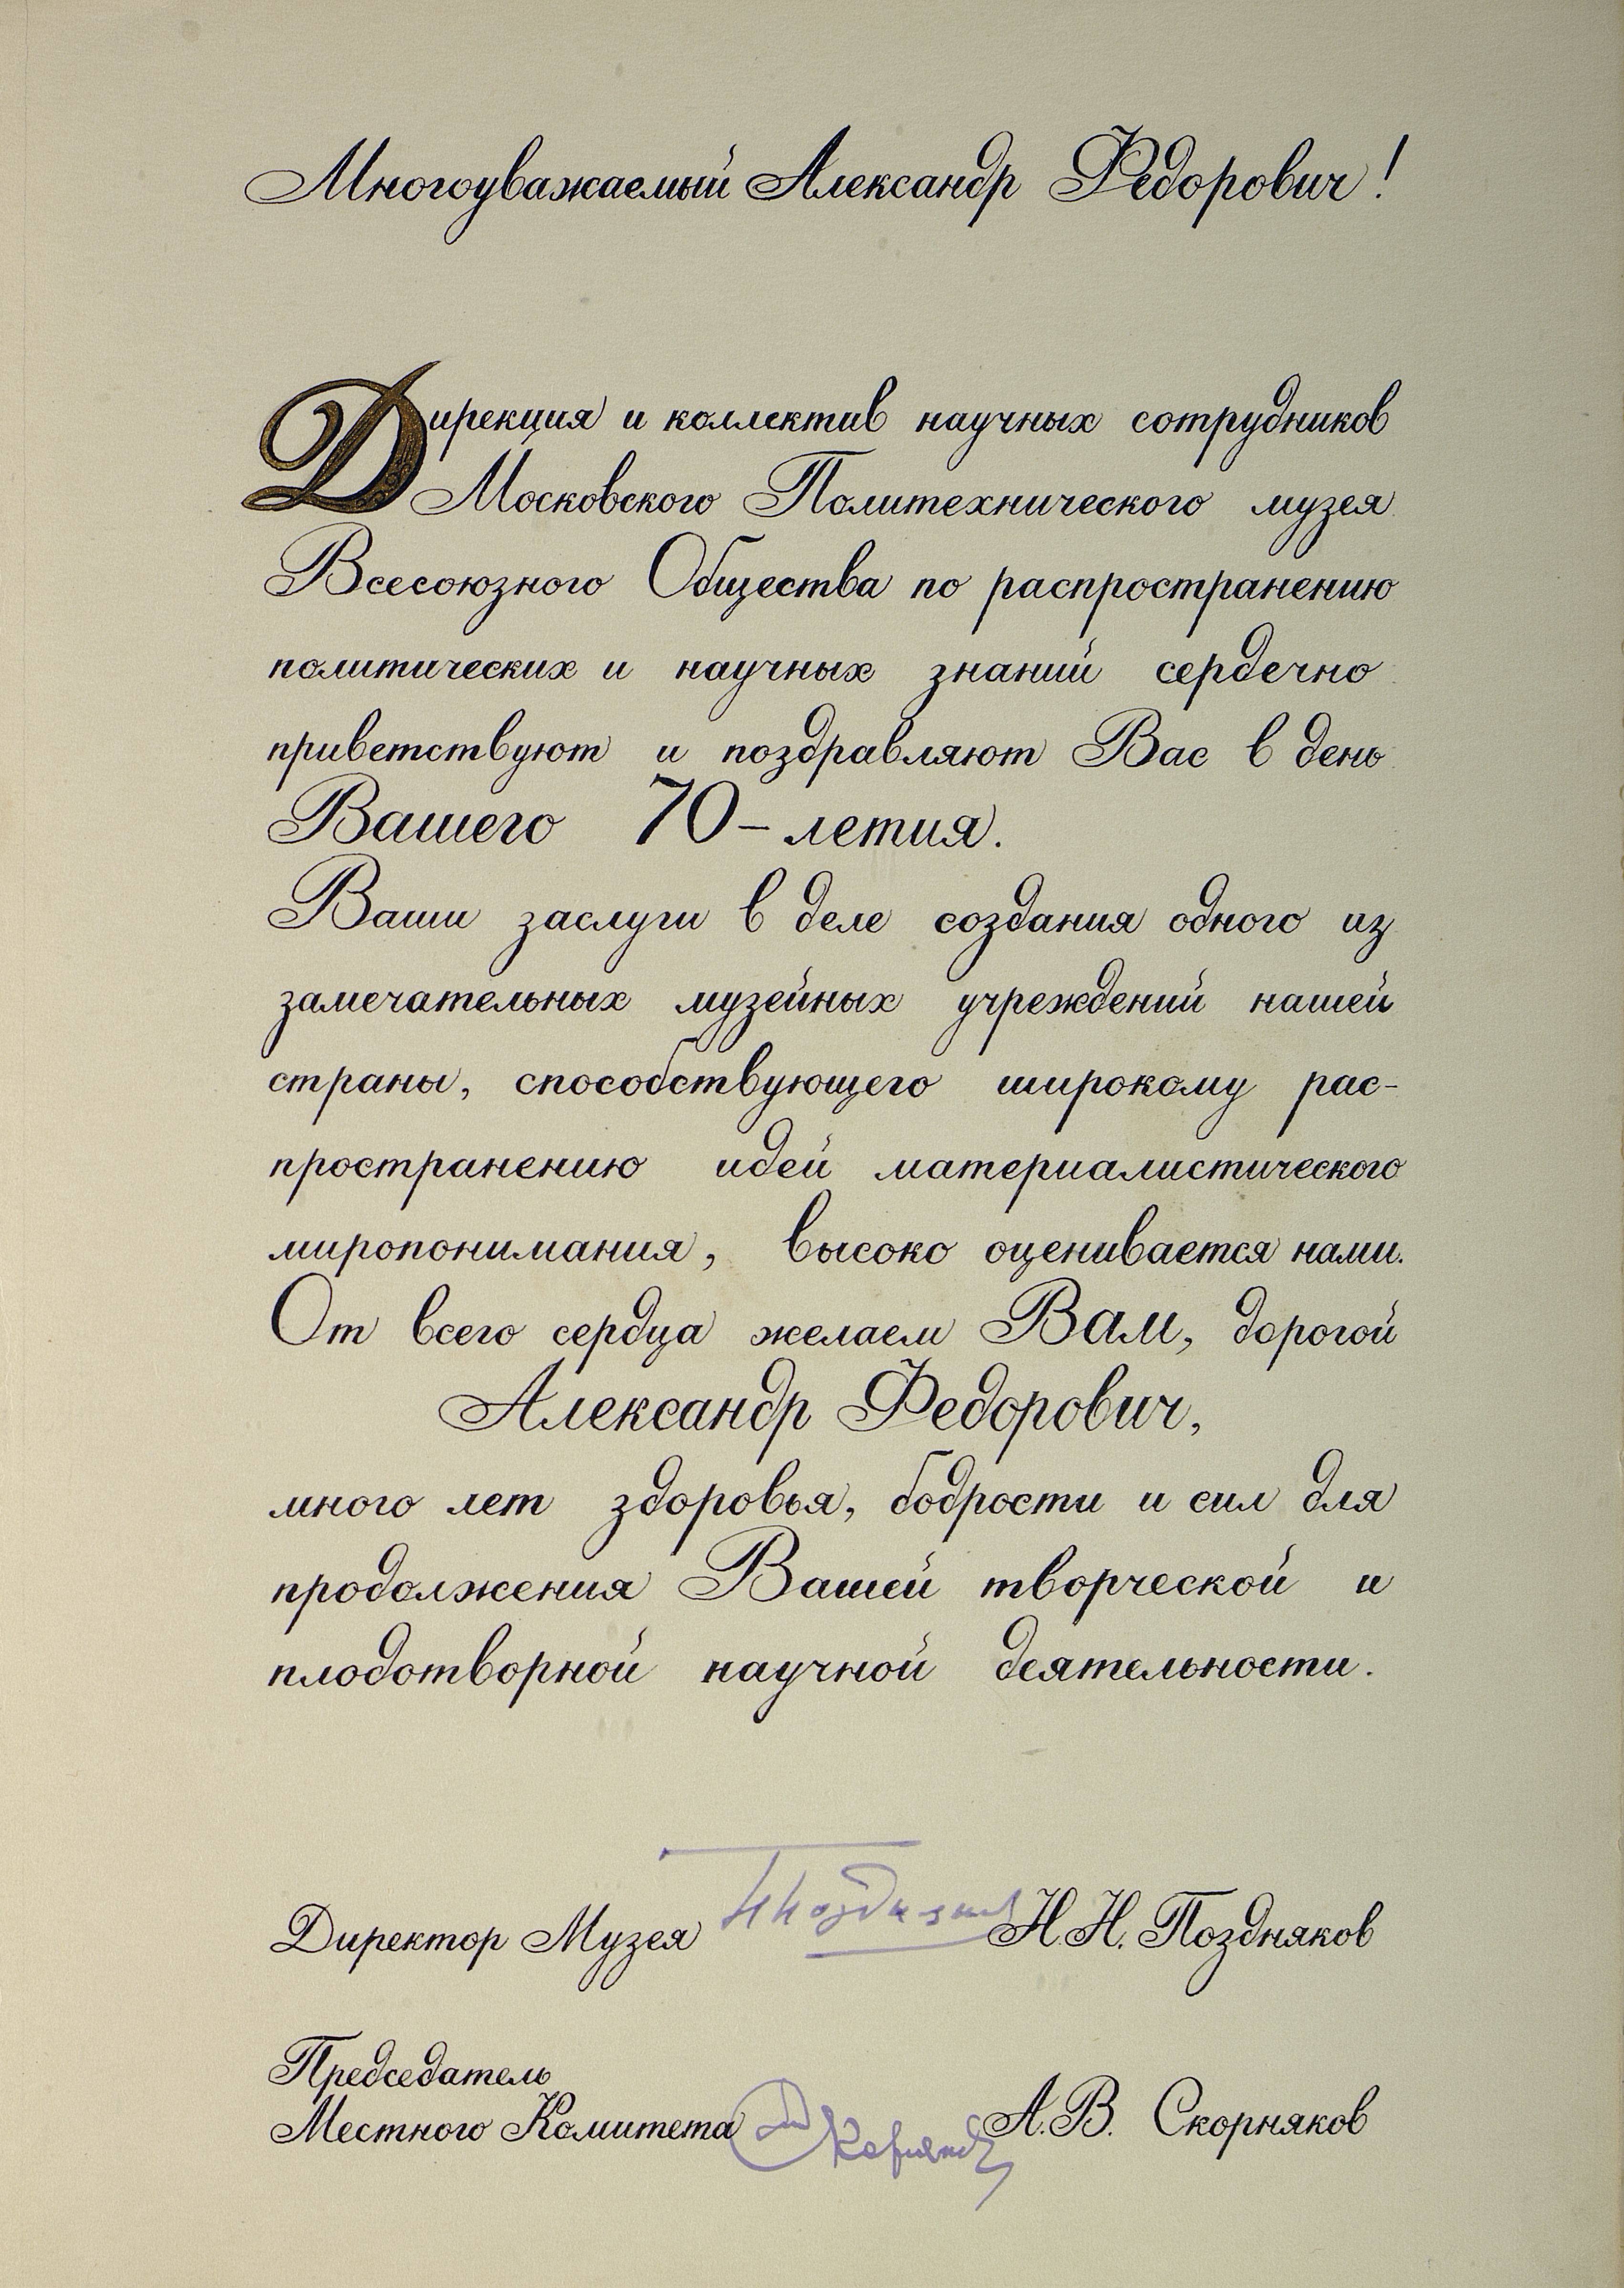 Многоуважаемый Александр Федорович!
Дирекция и коллектив научных сотрудников
Московского Политехнического музея
Всесоюзного Общества по распространению
политических и научных знаний сердечно
приветствуют и поздравляют Вас в день
Вашего 70-летия.
Ваши заслуги в деле создания одного из
замечательных музейных учреждений нашей
страны, способствующего широкому рас-
пространению идей материалистического
миропонимания, высоко оценивается нами.
От всего сердца желаем Вам, дорогой
Александр Федорович,
много лет здоровья, бодрости и сил для
продолжения Вашей творческой и
плодотворной научной деятельности.
Директор Музея Н.Н. Поздняков
Председатель
Местного Комитета А.В. Скорняков